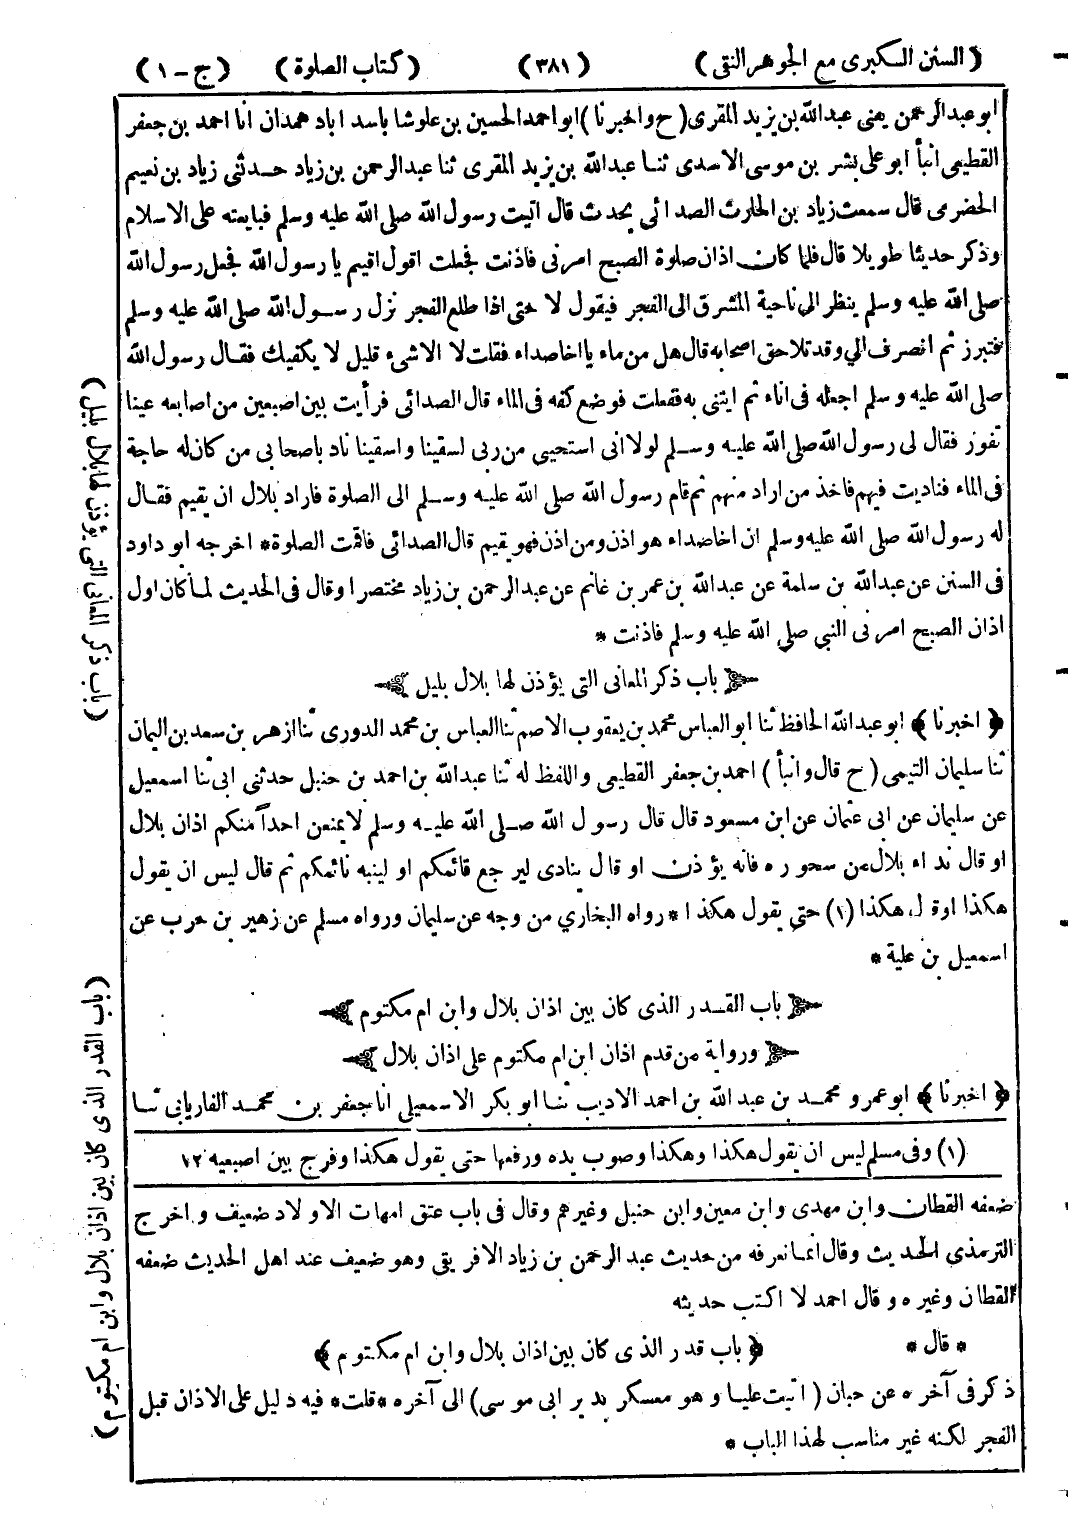 (السنن الكبرى مع الجوهر النقى) (٣٨١) (كتاب الصلوة) (ج - ١)
ابو عبد الرحمن يعنى عبد الله بن يزيد المقرى (ح واخبرنا) ابو احمد الحسين بن علوشا باسد اباد همدان انا احمد بن جعفر
القطيعى انبأ ابو على بشر بن موسى الاسدى ثنا عبد الله بن يزيد المقرى ثنا عبد الرحمن بن زياد حدثنى زياد بن نعيم
الحضرمى قال سمعت زياد بن الحارث الصدائى يحدث قال اتيت رسول الله صلى الله عليه وسلم فبايعته على الاسلام
وذكر حديثا طويلا قال فلما كان اذان صلوة الصبح امرنى فاذنت فجعلت اقول اقيم يا رسول الله فجعل رسول الله
صلى الله عليه وسلم ينظر الى ناحية المشرق الى الفجر فيقول لا حتى اذا طلع الفجر نزل رسول الله صلى الله عليه وسلم
فتبرز ثم انصرف الي وقد تلاحق اصحابه قال هل من ماء يا اخاصداء فقلت لا الا شىء قليل لا يكفيك فقال رسول الله
صلى الله عليه وسلم اجعله فى اناء ثم ايتنى به ففعلت فوضع كفه فى الماء قال الصدائى فرأيت بين اصبعين من اصابعه عينا
تفوز فقال لى رسول الله صلى الله عليه وسلم لولا انى استحيى من ربى لسقينا واسقينا ناد باصحابى من كان له حاجة
فى الماء فناديت فيهم فاخذ من اراد منهم ثم قام رسول الله صلى الله عليه وسلم الى الصلوة فاراد بلال ان يقيم فقال
له رسول الله صلى الله عليه وسلم ان اخاصداء هو اذن ومن اذن فهو يقيم قال الصدائى فاقمت الصلوة * اخرجه ابو داود
فى السنن عن عبد الله بن سلمة عن عبد الله بن عمر بن غانم عن عبد الرحمن بن زياد مختصرا وقال فى الحديث لما كان اول
اذان الصبح امرنى النبى صلى الله عليه وسلم فاذنت *
باب ذكر المعانى التى يؤذن لها بلال بليل
﴿ اخبرنا ﴾ ابو عبد الله الحافظ ثنا ابو العباس محمد بن يعقوب الاصم ثنا العباس بن محمد الدورى ثنا ازهر بن سعد بن اليمان
ثنا سليمان التيمى (ح قال وانبأ) احمد بن جعفر القطيعى واللفظ له ثنا عبد الله بن احمد بن حنبل حدثنى ابى ثنا اسمعيل
عن سليمان عن ابى عثمان عن ابن مسعود قال قال رسول الله صلى الله عليه وسلم لا يمنعن احداً منكم اذان بلال
او قال نداء بلال من سحوره فانه يؤذن او قال ينادى ليرجع قائمكم او لينبه نائمكم ثم قال ليس ان يقول
هكذا او قال هكذا (١) حتى يقول هكذا * رواه البخاري من وجه عن سليمان ورواه مسلم عن زهير بن حرب عن
اسمعيل بن علية *
باب القدر الذى كان بين اذان بلال وابن ام مكتوم
ورواية من قدم اذان ابن ام مكتوم على اذان بلال
﴿ اخبرنا ﴾ ابو عمرو محمد بن عبد الله بن احمد الاديب ثنا ابو بكر الاسمعيلى انا جعفر بن محمد الفاريابى ثنا
(١) وفى مسلم ليس ان يقول هكذا وهكذا وصوب يده ورفعها حتى يقول هكذا وفرج بين اصبعيه ١٢
ضعفه القطان وابن مهدى وابن معين وابن حنبل وغيرهم وقال فى باب عتق امهات الاولاد ضعيف واخرج
الترمذى الحديث وقال انما نعرفه من حديث عبد الرحمن بن زياد الافريقى وهو ضعيف عند اهل الحديث ضعفه
القطان وغيره وقال احمد لا اكتب حديثه
* قال * ﴿ باب قدر الذى كان بين اذان بلال وابن ام مكتوم ﴾
ذكر فى آخره عن حبان (اتيت عليا وهو معسكر بدير ابى موسى) الى آخره * قلت * فيه دليل على الاذان قبل
الفجر لكنه غير مناسب لهذا الباب *
(باب ذكر المعانى التى يؤذن لها بلال بليل)
(باب القدر الذى كان بين اذان بلال وابن ام مكتوم)